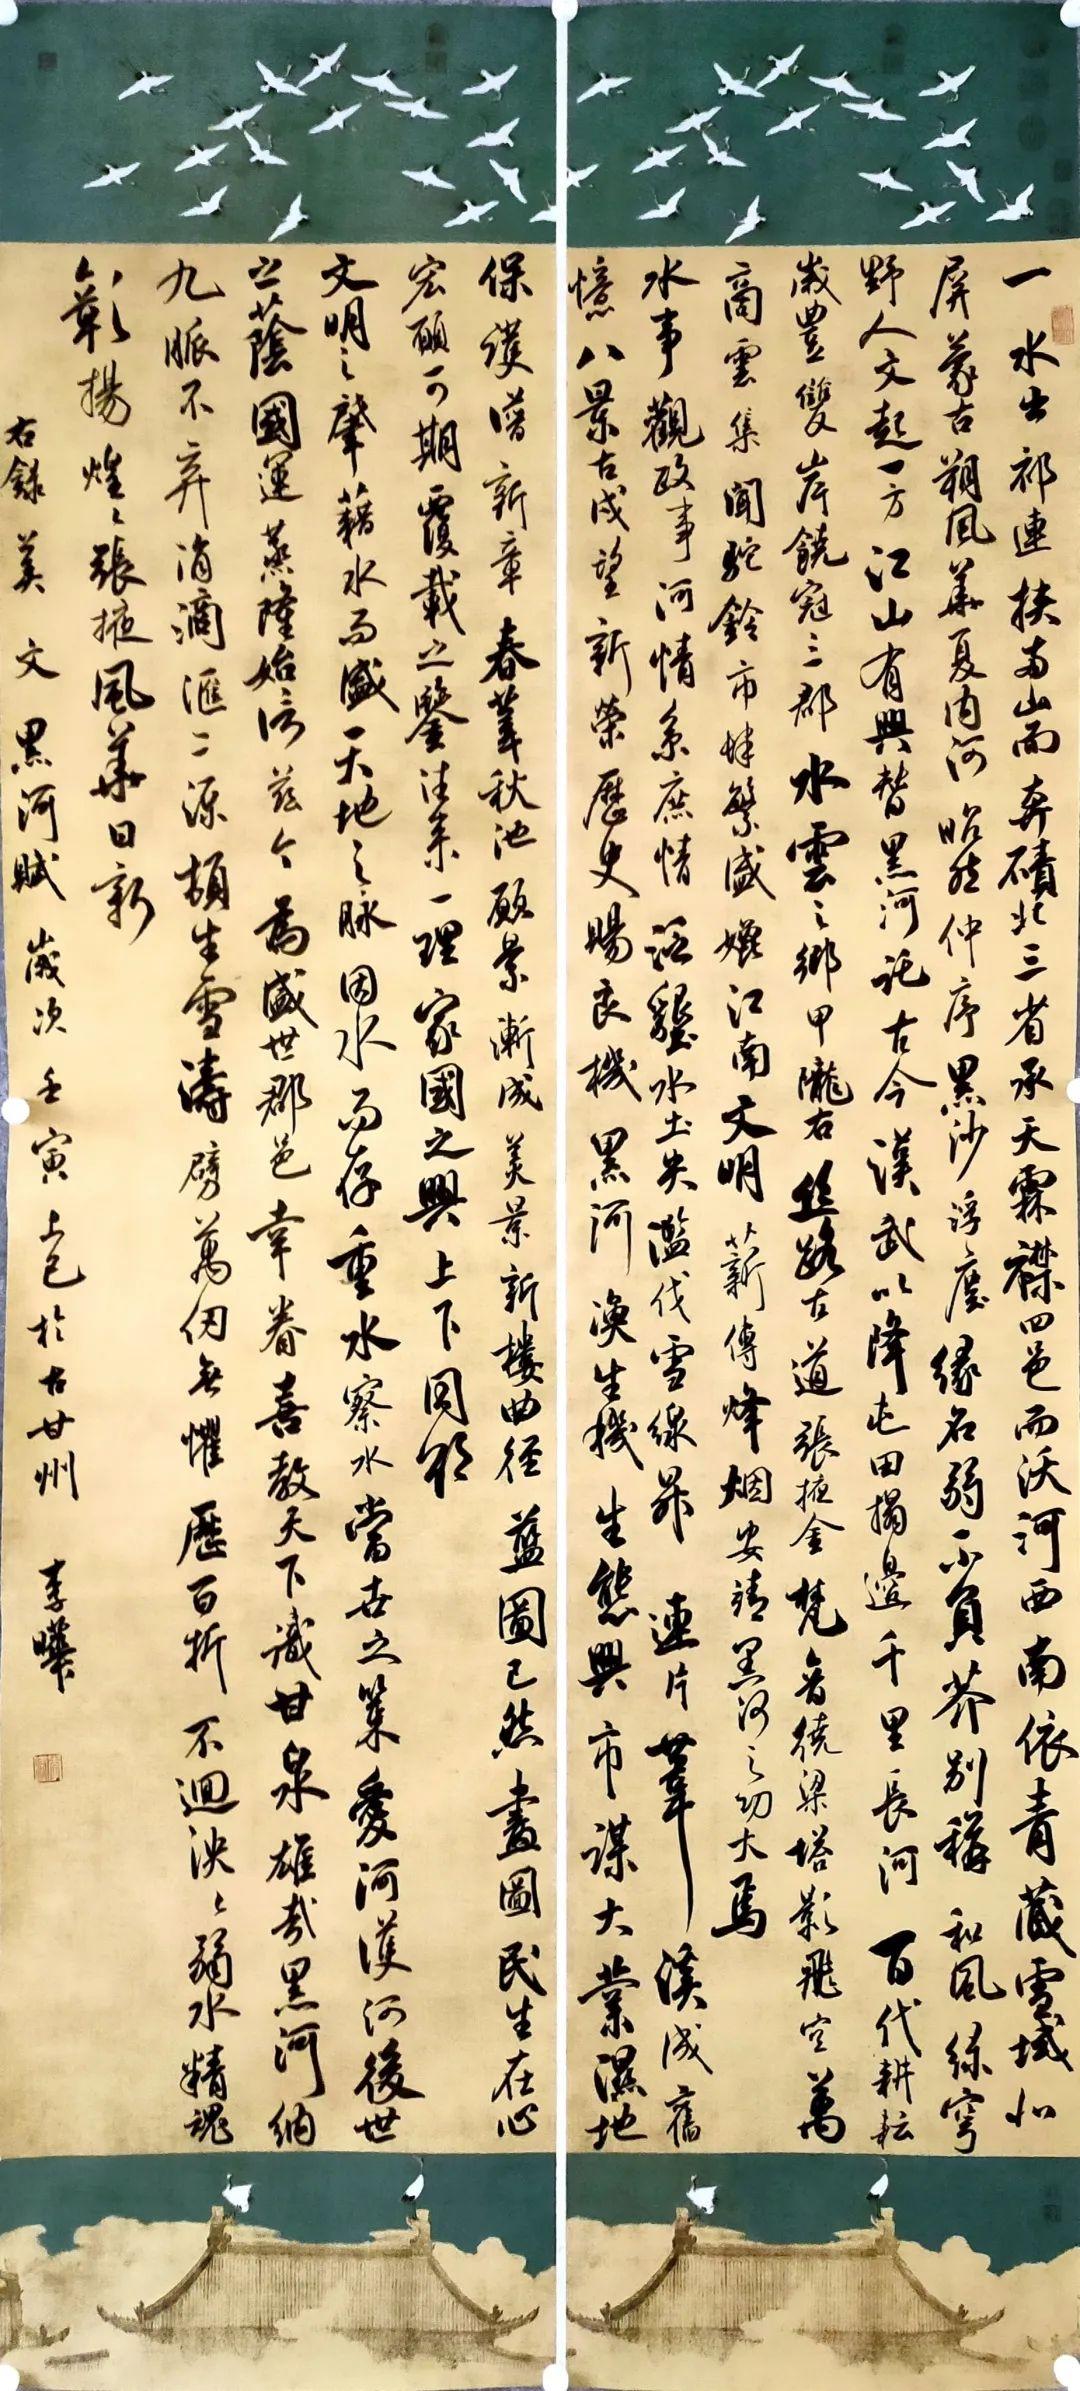 一水出祁連挾南山而奔磧北三省承天霖襟四邑而沃河西南依青藏雪域北
屏蒙古朔風華夏内河昭然仲序黑沙浮塵緣名弱不負芥别稱和風綠穹
野人文起一方江山有興替黑河託古今漢武以降屯田搨邊千里長河百代耕耘
歲豐雙岸饒冠三郡水雲之鄉甲隴右丝路古道張掖金梵音繞梁塔影飛空萬
商雲集聞駝鈴市肆繁盛媲江南文明薪傳烽烟安靖黑河之功大焉
水事觀政事河情系庶情 墾水土失濫伐雪線昇連片葦漠成舊
憶八景古戍望新榮歷史賜良機黑河渙生機生態興市謀大業濕地
保護譜新章春葦秋池願景漸成美景新樓曲徑藍圖已然畫圖民生在心
宏願可期覆載之鑒法系一理家國之興上下同
文明之肇藉水而盛天地之脉因水而存重水察水當世之策愛河護河後世
之蔭國運蒸隆始於兹今為盛世郡邑幸眷喜教天下識甘泉雄哉黑河納
九脈不弃涓滴滙二源頓生雪濤劈萬仞無懼歷百折不迴泱泱弱水精魂
彰揚煌煌張掖風華日新
右錄美文黑河賦歲次壬寅上巳於古甘州李曄